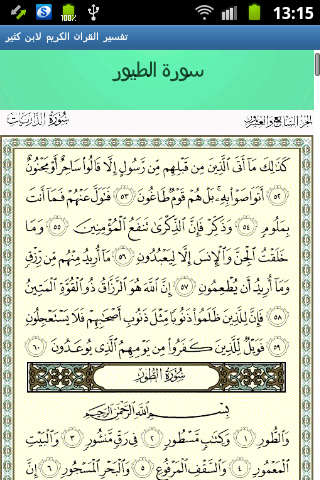 100%
13:15
تفسير القران الكريم لابن كثير
سورة الطيور
الجزء السابع والعشرون
سُورَةُ الذَّارِيَاتِ
كَذَٰلِكَ مَآ أَتَى ٱلَّذِينَ مِن قَبْلِهِم مِّن رَّسُولٍ إِلَّا قَالُوا۟ سَاحِرٌ أَوْ مَجْنُونٌ
٥٢ أَتَوَاصَوْا۟ بِهِۦ ۚ بَلْ هُمْ قَوْمٌ طَاغُونَ ٥٣ فَتَوَلَّ عَنْهُمْ فَمَآ أَنتَ
بِمَلُومٍ ٥٤ وَذَكِّرْ فَإِنَّ ٱلذِّكْرَىٰ تَنفَعُ ٱلْمُؤْمِنِينَ ٥٥ وَمَا
خَلَقْتُ ٱلْجِنَّ وَٱلْإِنسَ إِلَّا لِيَعْبُدُونِ ٥٦ مَآ أُرِيدُ مِنْهُم مِّن رِّزْقٍ
وَمَآ أُرِيدُ أَن يُطْعِمُونِ ٥٧ إِنَّ ٱللَّهَ هُوَ ٱلرَّزَّاقُ ذُو ٱلْقُوَّةِ ٱلْمَتِينُ
٥٨ فَإِنَّ لِلَّذِينَ ظَلَمُوا۟ ذَنُوبًا مِّثْلَ ذَنُوبِ أَصْحَٰبِهِمْ فَلَا يَسْتَعْجِلُونِ
٥٩ فَوَيْلٌ لِّلَّذِينَ كَفَرُوا۟ مِن يَوْمِهِمُ ٱلَّذِى يُوعَدُونَ ٦٠
سُورَةُ الطُّورِ
بِسْمِ ٱللَّهِ ٱلرَّحْمَٰنِ ٱلرَّحِيمِ
وَٱلطُّورِ ١ وَكِتَٰبٍ مَّسْطُورٍ ٢ فِى رَقٍّ مَّنشُورٍ ٣ وَٱلْبَيْتِ
ٱلْمَعْمُورِ ٤ وَٱلسَّقْفِ ٱلْمَرْفُوعِ ٥ وَٱلْبَحْرِ ٱلْمَسْجُورِ ٦ إِنَّ